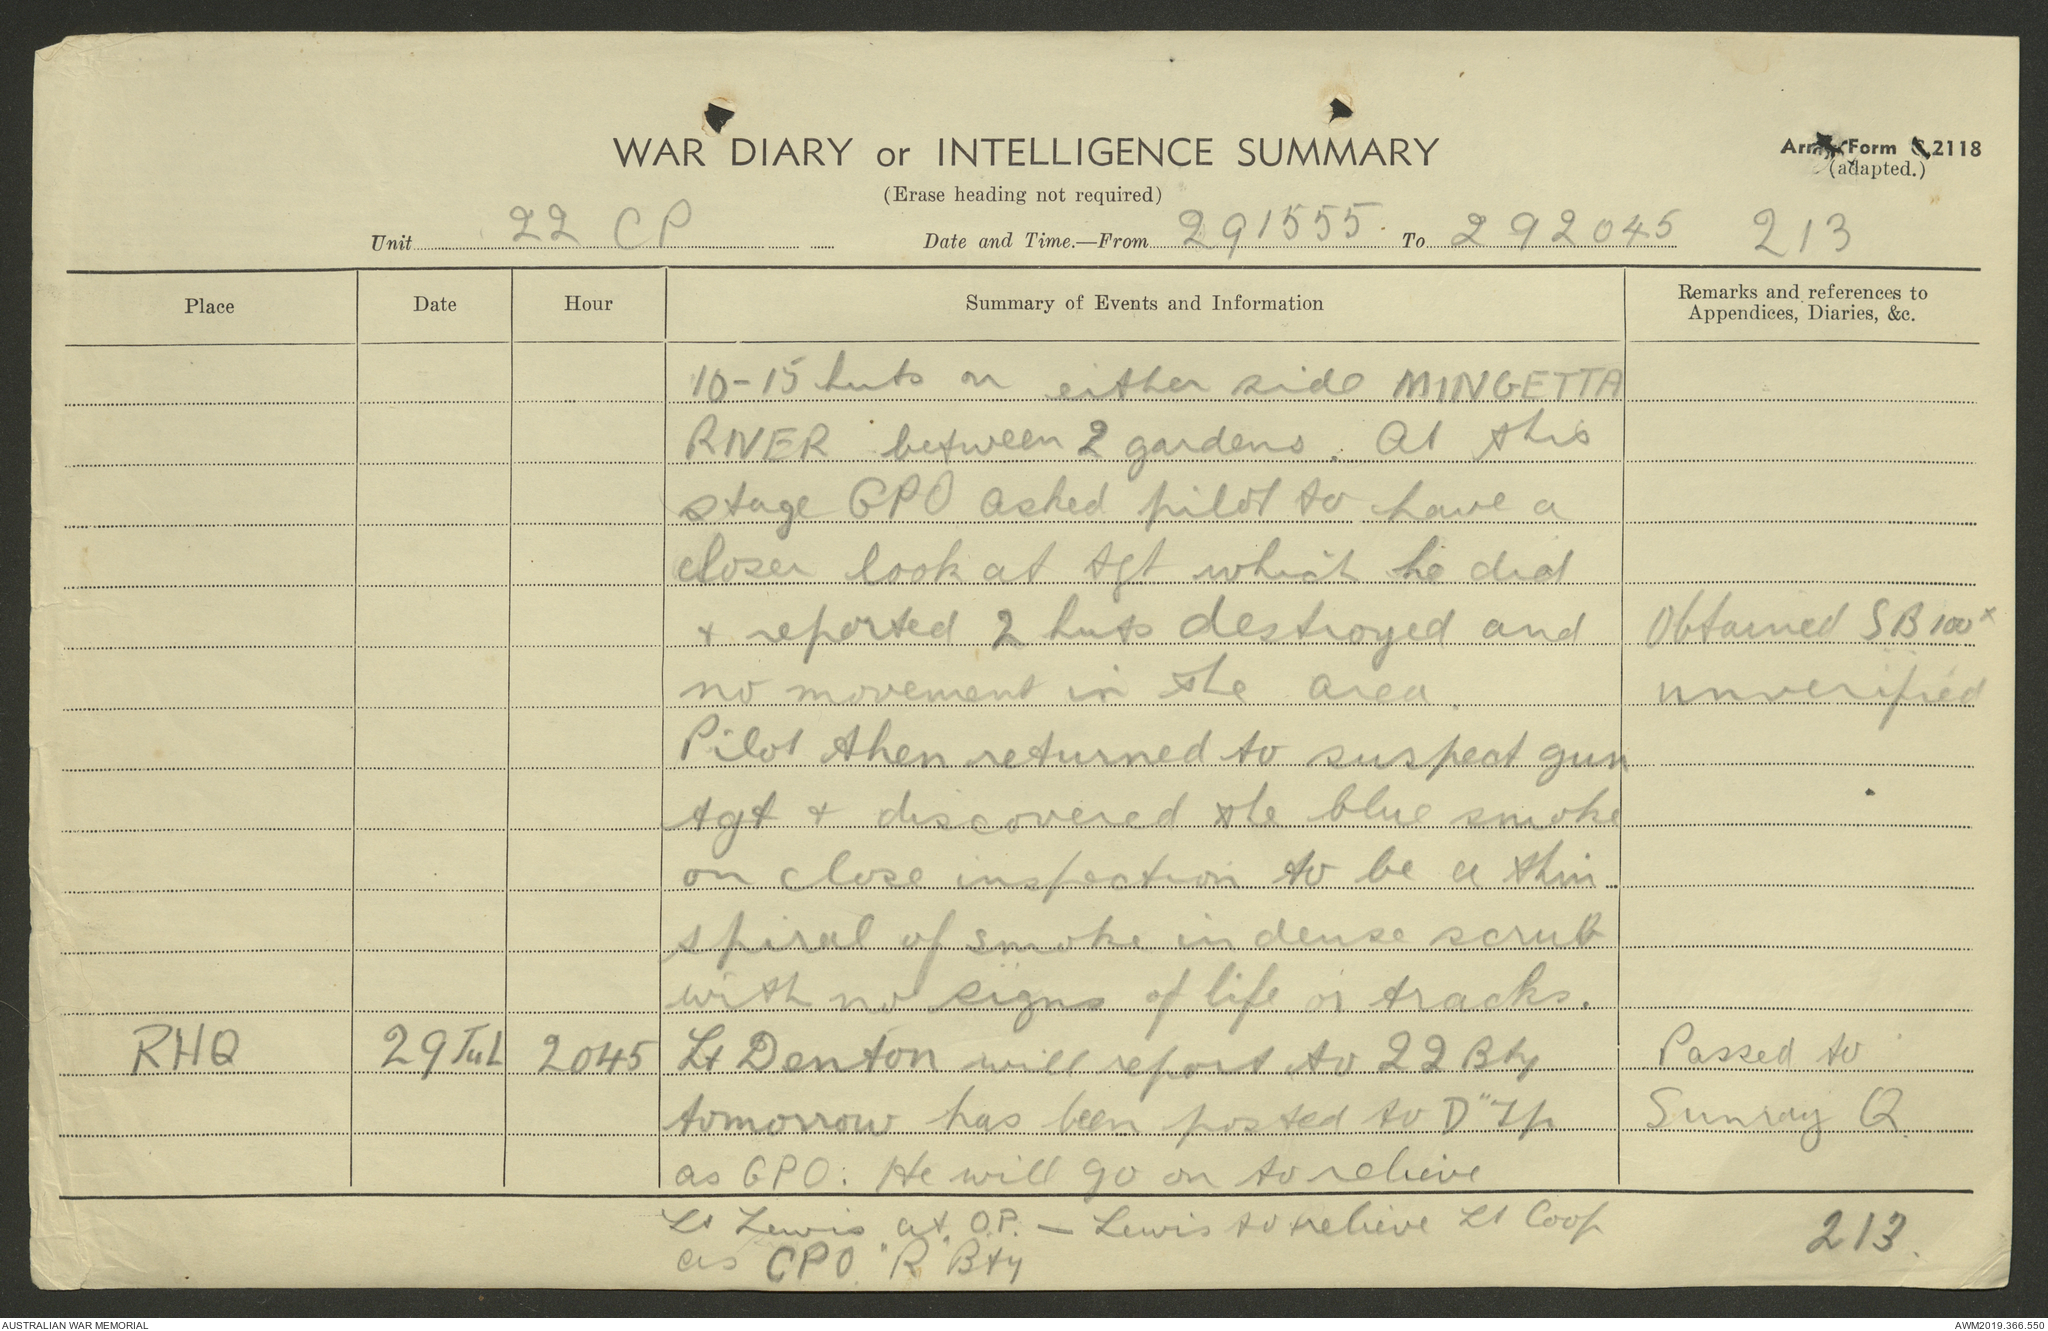 WAR DIARY or INTELLIGENCE SUMMARY
Army Form C.2118
(adapted.)
(Erase heading not required)
Unit 22 CP Date and Time.—From 291555. To 292045 213
Place Date Hour Summary of Events and Information Remarks and references to
Appendices, Diaries, &c.
10-15 huts on either side MINGETTA
RIVER between 2 gardens. At this
stage GPO asked pilot to have a
closer look at tgt which he did
+ reported 2 huts destroyed and Obtained SB 100x
no movement in the area. unverified
Pilot then returned to suspect gun
tgt + discovered the blue smoke
on close inspection to be a thin
spiral of smoke in dense scrub
with no signs of life or tracks.
RHQ 29 JuL 2045 Lt Denton will report to 22 Bty Passed to
tomorrow has been posted to D" Tp Sunray Q.
as GPO: He will go on to relieve
Lt Lewis at O.P. - Lewis to relieve Lt Coop
as CPO "R" Bty
213.
AUSTRALIAN WAR MEMORIAL
AWM2019.366.550